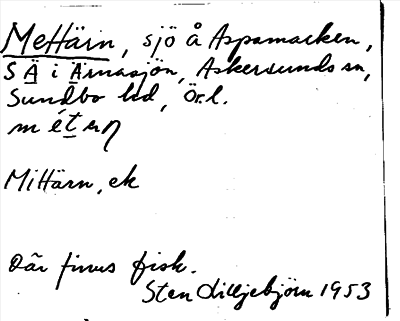 Mettärn, sjö å Aspamarken,
S Ä i Ärnasjön, Askersunds sn,
Sundbo hd, Ör.l.
m é t e ɳ
Mittärn, ek
Där finns fisk.
Sten Lilljebjörn 1953